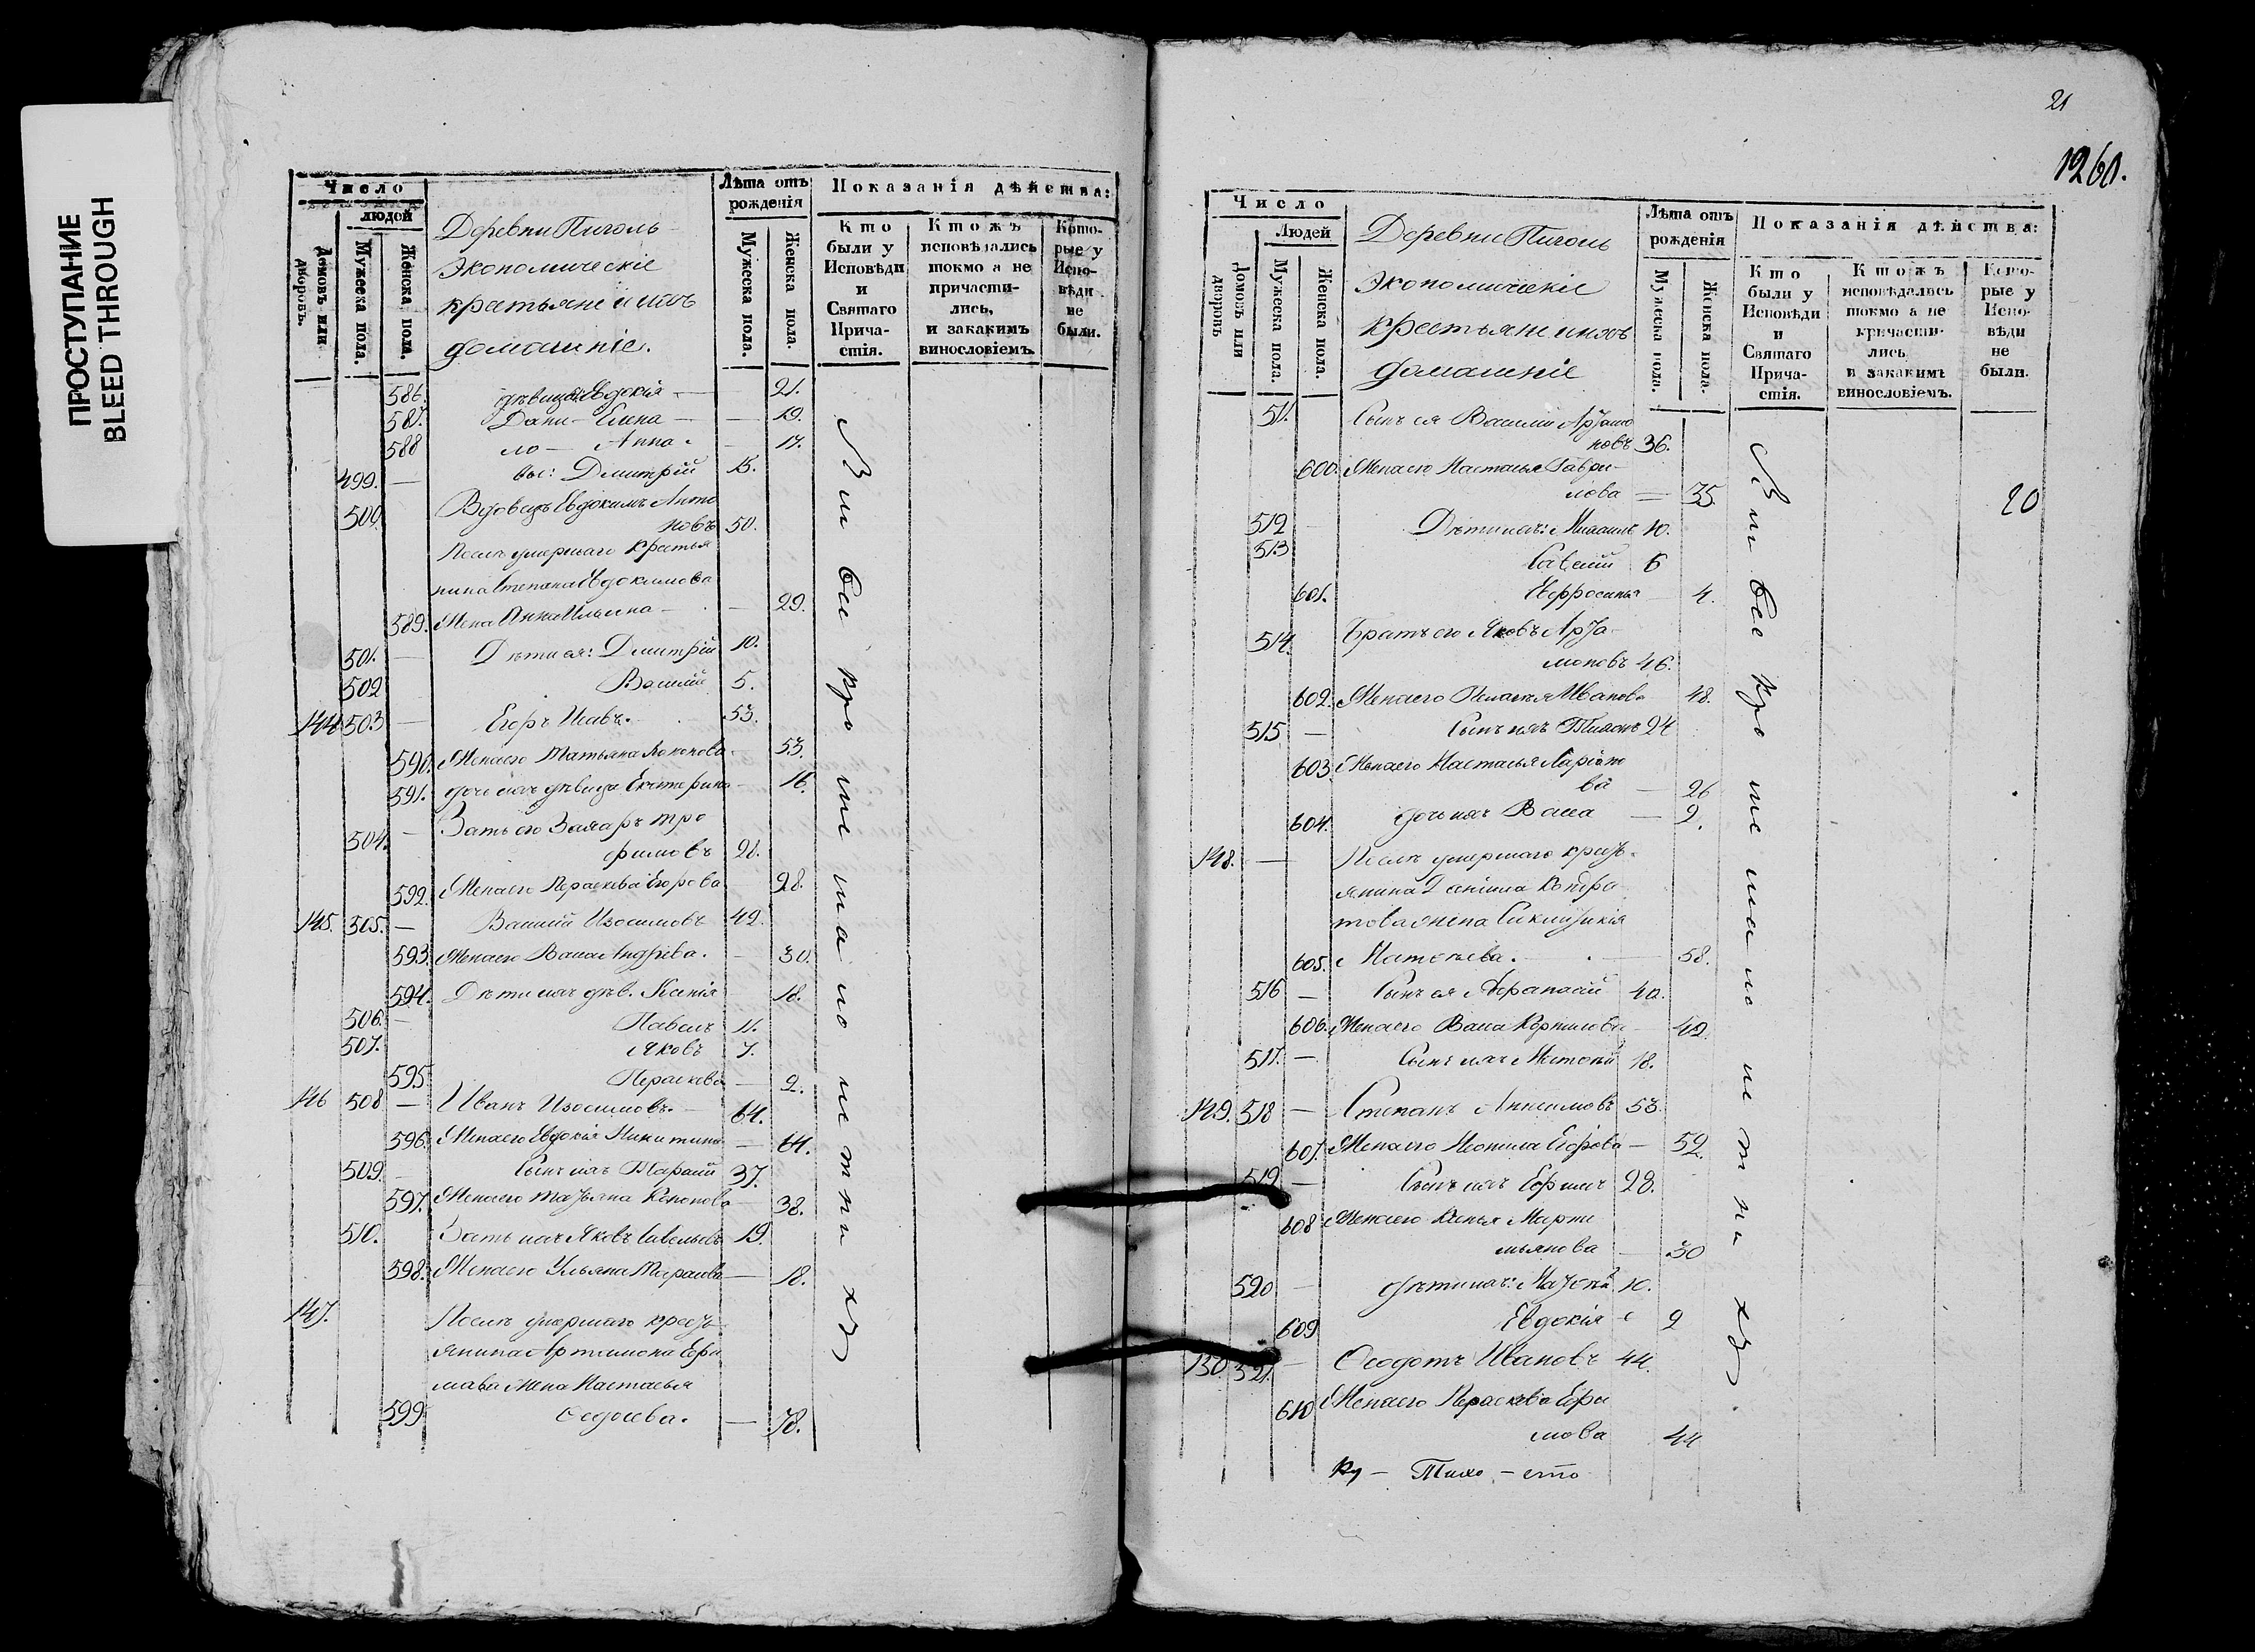 ПРОСТУПАНИЕ
BLEED THROUGH
Число
людей
Домовъ или дворовъ.
Мужеска пола.
Женска пола.
Деревни Пиголь
Экономическіе
крестьяне и ихъ
домашніе.
Лѣта отъ рожденія
Мужеска пола.
Женска пола.
Показанія дѣйства:
Кто были у Исповѣди и Святаго Причастія.
Ктожъ исповѣдались токмо а не причастились, и закакимъ винословіемъ.
Которые у Исповѣди не были.
586. дѣвица Евдокія — 21.
587. Дани- Елена — 19.
588 ло- Анна — 17.
499. — вы: Дмитрій 15.
500. Вдовецъ Евдокимъ Анто
новъ 50.
Послѣ умершаго крестья
нина Степана Евдокимова
589. Жена Анна Ильина — 29.
501. — Дѣти ея: Дмитрій 10.
502 Василій 5.
144 503 — Егоръ Исаевъ. 53.
590. Жена его Татьяна Кононова 53.
591. дочь ихъ дѣвица Екатерина — 16.
504. — Зять его Захаръ Тро
фимовъ 21.
592. Жена его Параскева Егорова 28.
145. 505. — Василій Изосимовъ 42.
593. Жена его Васса Андрѣева. — 30.
594. Дѣти ихъ дѣв. Ксенія 18.
506. — Павелъ 11.
507. Яковъ 7.
595 Параскева — 2.
146 508 — Иванъ Изосимовъ. 64.
596. Жена его Евдокія Никитина — 64.
509. — Сынъ ихъ Тарасій 37.
597. Жена его Татьяна Кононова 38.
510. Зять ихъ Яковъ Савельевъ 19.
598. Жена его Ульяна Тарасова — 18.
147. Послѣ умершаго кресть
янина Артамона Ефи
мова жена Настасья
599 Федосева. — 78.
Вси
21
1260.
Число
Людей
Домовъ или дворовъ
Мужеска пола.
Женска пола.
Деревни Пиголь
Экономическіе
крестьяне и ихъ
домашніе
Лѣта отъ рожденія
Мужеска пола.
Женска пола.
Показанія дѣйства:
Кто были у Исповѣди и Святаго Причастія.
Ктожъ исповѣдались токмо а не причастились и закакимъ винословіемъ.
Которые у Исповѣди не были.
511. Сынъ ея Василій Артамо
новъ 36.
600. Жена его Настасья Гаври-
лова — 35
20
512 — Дѣти ихъ: Михаилъ 10.
513 Савелій 6
601. Евфросинья 4.
514. Братъ его Яковъ Арта
моновъ 46.
602. Жена его Пелагея Иванова 48.
515 — Сынъ ихъ Тихонъ 24
603. Жена его Настасья Ларіоно
ва — 26
604. дочь ихъ Васса — 2.
148. — Послѣ умершаго кресть-
янина Даніила Кондра
това жена Синклитикія
605. Матвѣева. — 58.
516 — Сынъ ея Афанасій 40.
606. Жена его Васса Корнилова 42.
517. — Сынъ ихъ Матвѣй 18.
149. 518 — Степанъ Анисимовъ 53.
607. Жена его Неонила Егорова — 52.
519 — Сынъ ихъ Ефимъ 28.
608 Жена его Ксенья Марти
мьянова — 30
520 — Дѣти ихъ: Матвѣй 10.
609 Евдокія 2
150. 521. — Феодотъ Ивановъ 44.
610 Жена его Параскева Ефи
мова 44